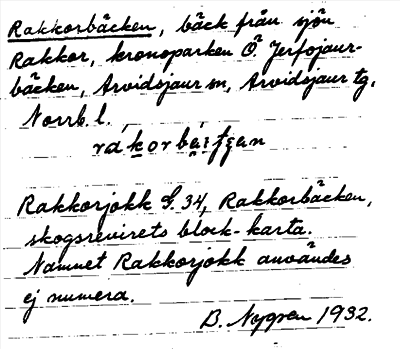 Rakkorbäcken, bäck från sjön
Rakkor, kronoparken Ö. Jerfojaur-
bäcken, Arvidsjaur sn, Arvidsjaur tg,
Norrb. l.
Rakkorjokk G. 34, Rakkorbäcken,
skogsrevirets block-karta.
Namnet Rakkorjokk användes
ej numera.
B. Nygren 1932.